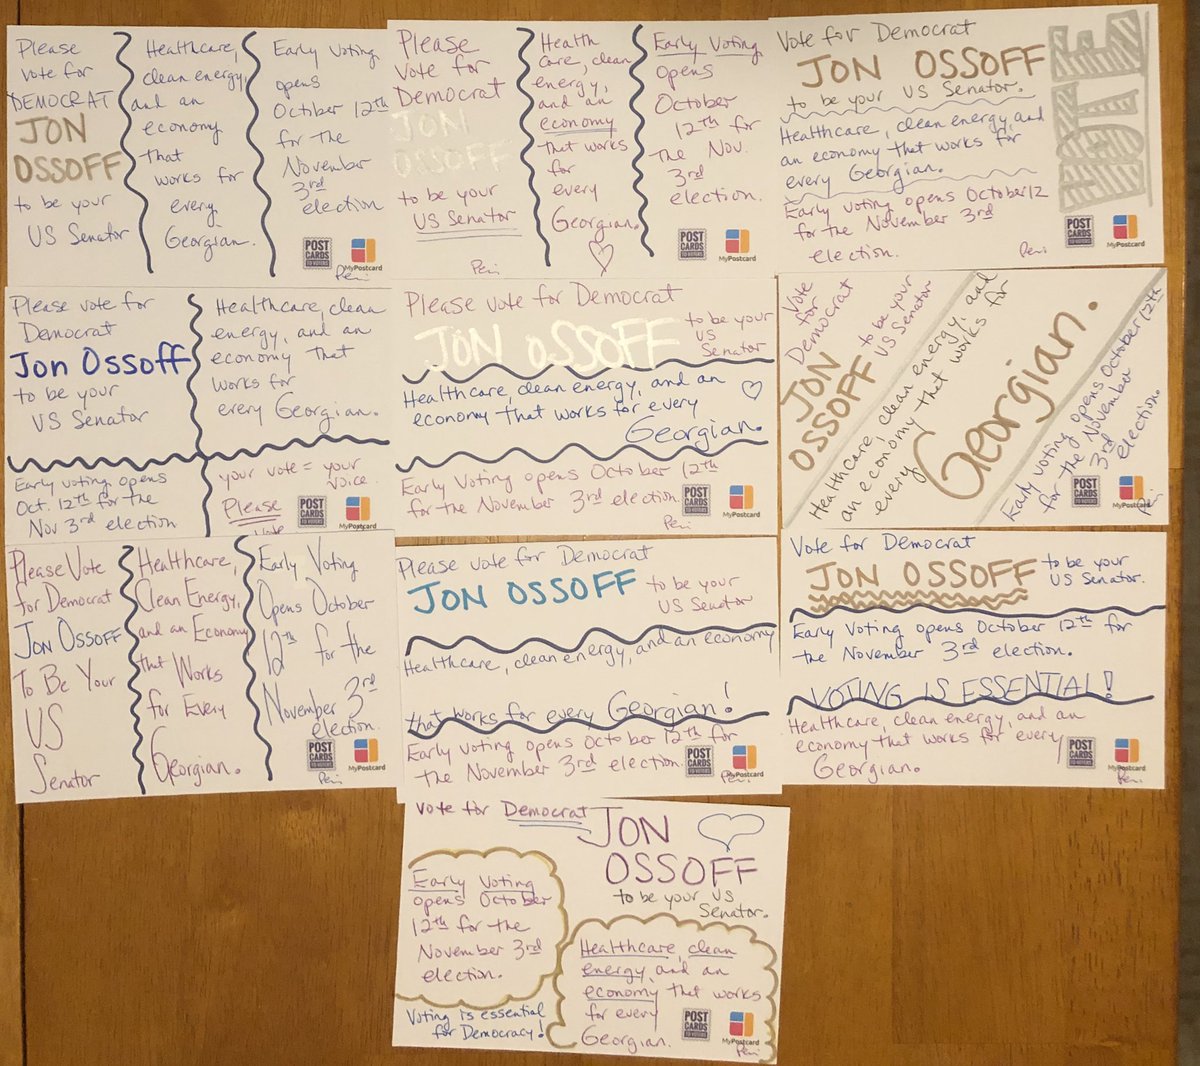 Please
vote for
DEMOCRAT
JON
OSSOFF
to be your
US Senator
Healthcare,
clean energy,
and an
economy
that
works for
every
Georgian.
Early Voting
opens
October 12th
for the
November
3rd
election
POST
CARDS
TO VOTERS
MyPostcard
Peri
Please
vote for
Democrat
JON
OSSOFF
to be your
US Senator
Peri
Health
care, clean
energy,
and an
economy
that works
for
every
Georgian.
Early Voting
opens
October
12th for
the Nov.
3rd
election.
POST
CARDS
TO VOTERS
MyPostcard
Vote for Democrat
JON OSSOFF
to be your US Senator.
Healthcare, clean energy, and
an economy that works for
every Georgian.
Early voting opens October 12
for the November 3rd
election.
VOTE
Peri
POST
CARDS
TO VOTERS
MyPostcard
Please vote for
Democrat
Jon Ossoff
to be your
US Senator
Healthcare, clean
energy, and an
economy that
works for
every Georgian.
Early voting opens
Oct. 12th for the
Nov 3rd election
your vote = your
voice.
Please
Vote
POST
CARDS
TO VOTERS
MyPostcard
Please vote for Democrat
JON OSSOFF
to be your
US
Senator
Healthcare, clean energy, and an
economy that works for every
Georgian.
Early Voting opens October 12th
for the November 3rd election.
POST
CARDS
TO VOTERS
MyPostcard
Peri
Vote
for
Democrat
JON
OSSOFF
to be your
US Senator
Healthcare, clean energy, and
an economy that works for
every
Georgian.
Early voting opens October 12th
for the November
3rd
election.
POST
CARDS
TO VOTERS
MyPostcard
Peri
Please Vote
for Democrat
JON OSSOFF
To Be Your
US
Senator
Healthcare,
Clean Energy,
and an Economy
that Works
for Every
Georgian.
Early Voting
Opens October
12th for the
November 3rd
election.
POST
CARDS
TO VOTERS
MyPostcard
Peri
Please vote for Democrat
JON OSSOFF
to be your
US Senator
Healthcare, clean energy, and an economy
that works for every Georgian!
Early voting opens October 12th for
the November 3rd election.
POST
CARDS
TO VOTERS
MyPostcard
Peri
Vote for Democrat
JON OSSOFF
to be your
US Senator.
Early Voting opens October 12th for
the November 3rd election.
VOTING IS ESSENTIAL!
Healthcare, clean energy, and an
economy that works for every
Georgian.
POST
CARDS
TO VOTERS
MyPostcard
Peri
Vote for Democrat
JON
OSSOFF
to be your US
Senator.
Early Voting
opens October
12th for the
November 3rd
election.
Healthcare, clean
energy, and an
economy that works
for every
Georgian.
Voting is essential
for Democracy!
POST
CARDS
TO VOTERS
MyPostcard
Peri